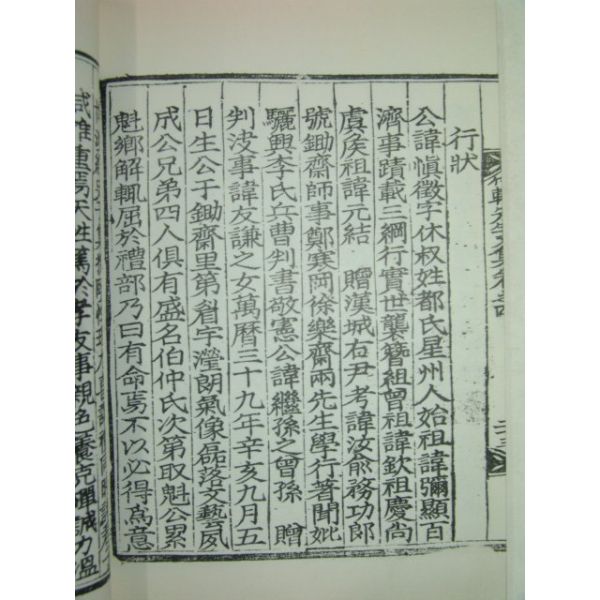 行狀
公諱愼徵字休叔姓都氏星州人始祖諱彌顯百
濟事蹟載三綱行實世襲簪組曾祖諱欽祖慶尙
虞侯祖諱元結 贈漢城右尹考諱汝兪務功郞
號鋤齋師事鄭寒岡徐樂齋兩先生學行著聞妣
驪興李氏兵曹判書敬憲公諱繼孫之曾孫 贈
判決事諱友謙之女萬曆三十九年辛亥九月五
日生公于鋤齋里第眉宇瀅朗氣像磊落文藝夙
成公兄弟四人俱有盛名伯仲氏次第取魁公累
魁鄕解輒屈於禮部乃曰有命焉不以必得爲意
咸推重焉天性篤於孝友事親色養克殫誠力溫